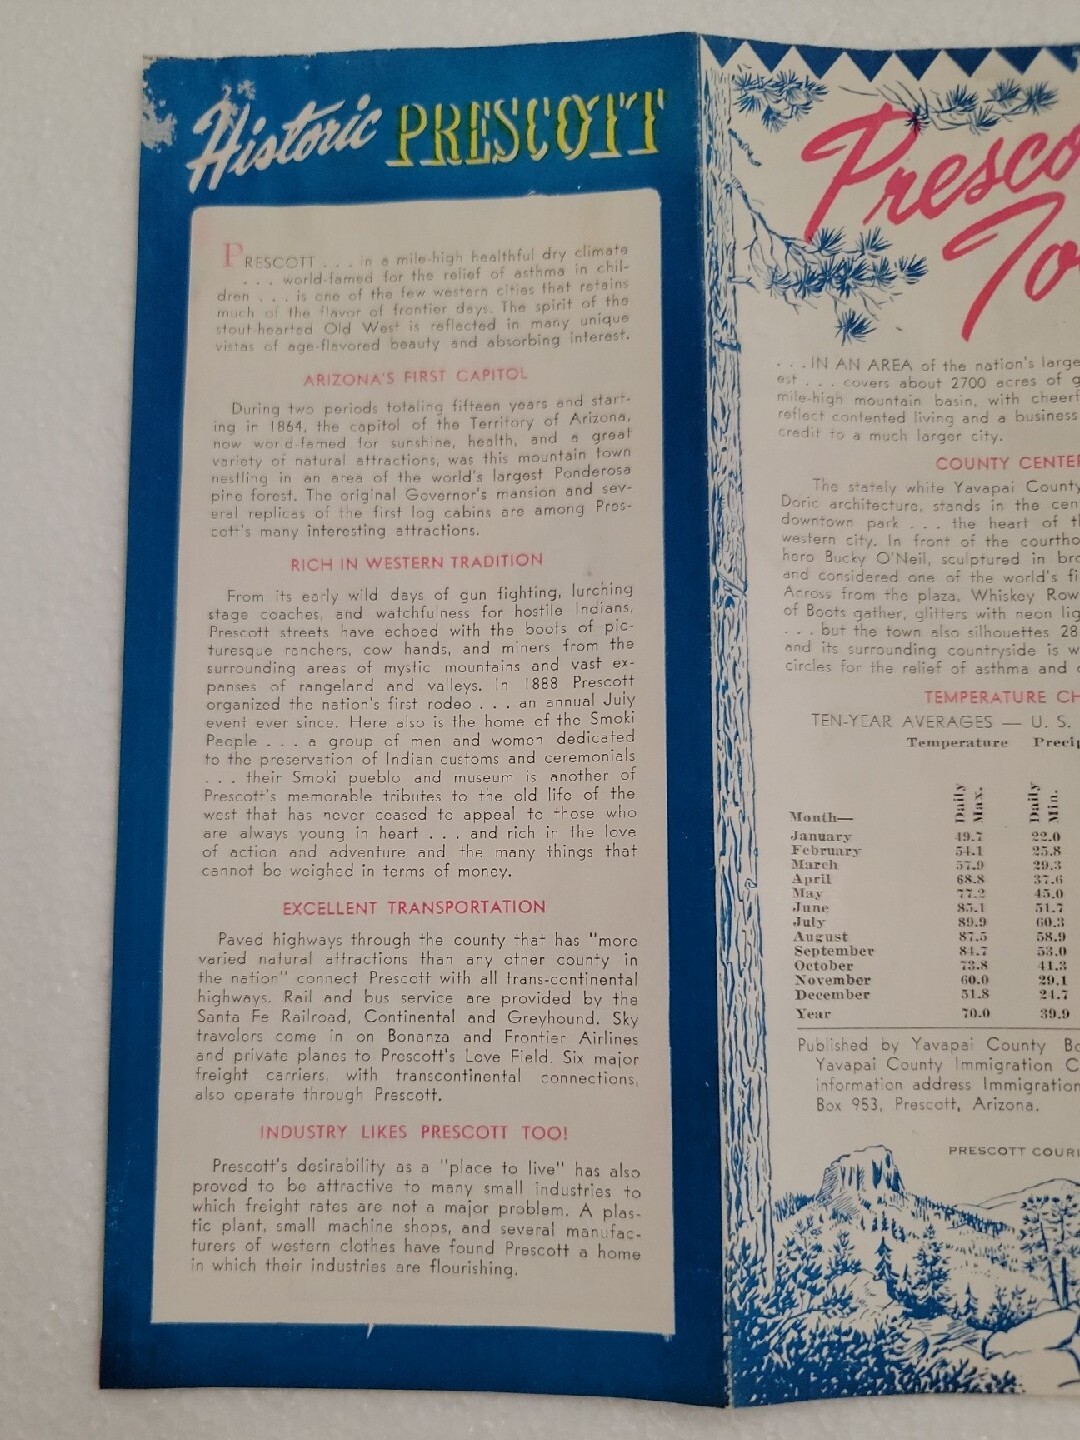 Historic PRESCOTT
PRESCOTT . . . in a mile-high healthful dry climate
. . . world-famed for the relief of asthma in chil-
dren . . . is one of the few western cities that retains
much of the flavor of frontier days. The spirit of the
stout-hearted Old West is reflected in many unique
vistas of age-flavored beauty and absorbing interest.
ARIZONA'S FIRST CAPITOL
During two periods totaling fifteen years and start-
ing in 1864, the capitol of the Territory of Arizona,
now world-famed for sunshine, health, and a great
variety of natural attractions, was this mountain town
nestling in an area of the world's largest Ponderosa
pine forest. The original Governor's mansion and sev-
eral replicas of the first log cabins are among Pres-
cott's many interesting attractions.
RICH IN WESTERN TRADITION
From its early wild days of gun fighting, lurching
stage coaches, and watchfulness for hostile Indians,
Prescott streets have echoed with the boots of pic-
turesque ranchers, cow hands, and miners from the
surrounding areas of mystic mountains and vast ex-
panses of rangeland and valleys. In 1888 Prescott
organized the nation's first rodeo . . . an annual July
event ever since. Here also is the home of the Smoki
People . . . a group of men and women dedicated
to the preservation of Indian customs and ceremonials
. . . their Smoki pueblo and museum is another of
Prescott's memorable tributes to the old life of the
west that has never ceased to appeal to those who
are always young in heart . . . and rich in the love
of action and adventure and the many things that
cannot be weighed in terms of money.
EXCELLENT TRANSPORTATION
Paved highways through the county that has "more
varied natural attractions than any other county in
the nation" connect Prescott with all trans-continental
highways. Rail and bus service are provided by the
Santa Fe Railroad, Continental and Greyhound. Sky
travelers come in on Bonanza and Frontier Airlines
and private planes to Prescott's Love Field. Six major
freight carriers, with transcontinental connections,
also operate through Prescott.
INDUSTRY LIKES PRESCOTT TOO!
Prescott's desirability as a "place to live" has also
proved to be attractive to many small industries to
which freight rates are not a major problem. A plas-
tic plant, small machine shops, and several manufac-
turers of western clothes have found Prescott a home
in which their industries are flourishing.
Presco
To
. . . IN AN AREA of the nation's large
est . . . covers about 2700 acres of g
mile-high mountain basin, with cheerf
reflect contented living and a business
credit to a much larger city.
COUNTY CENTER
The stately white Yavapai County
Doric architecture, stands in the cen
downtown park . . . the heart of th
western city. In front of the courtho
hero Bucky O'Neil, sculptured in bro
and considered one of the world's fi
Across from the plaza, Whiskey Row
of Boots gather, glitters with neon lig
. . . but the town also silhouettes 28
and its surrounding countryside is w
circles for the relief of asthma and
TEMPERATURE CH
TEN-YEAR AVERAGES — U. S.
Temperature Precip
Month— Daily Max. Daily Min.
January 49.7 22.0
February 54.1 25.8
March 57.9 29.3
April 68.8 37.6
May 77.2 45.0
June 85.1 51.7
July 89.9 60.3
August 87.5 58.9
September 84.7 53.0
October 73.8 41.3
November 60.0 29.1
December 51.8 24.7
Year 70.0 39.9
Published by Yavapai County Bo
Yavapai County Immigration C
information address Immigration
Box 953, Prescott, Arizona.
PRESCOTT COURI